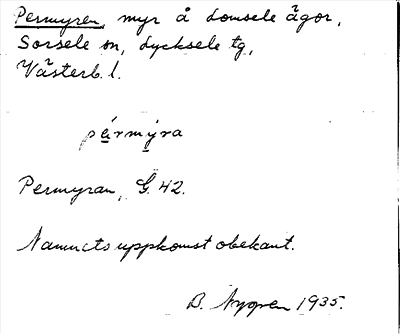 Permyren, myr å Lomsele ägor,
Sorsele sn, Lycksele tg,
Västerb. l.
pärmýra
Permyran, G. 42.
Namnets uppkomst obekant.
B. Nygren 1935.